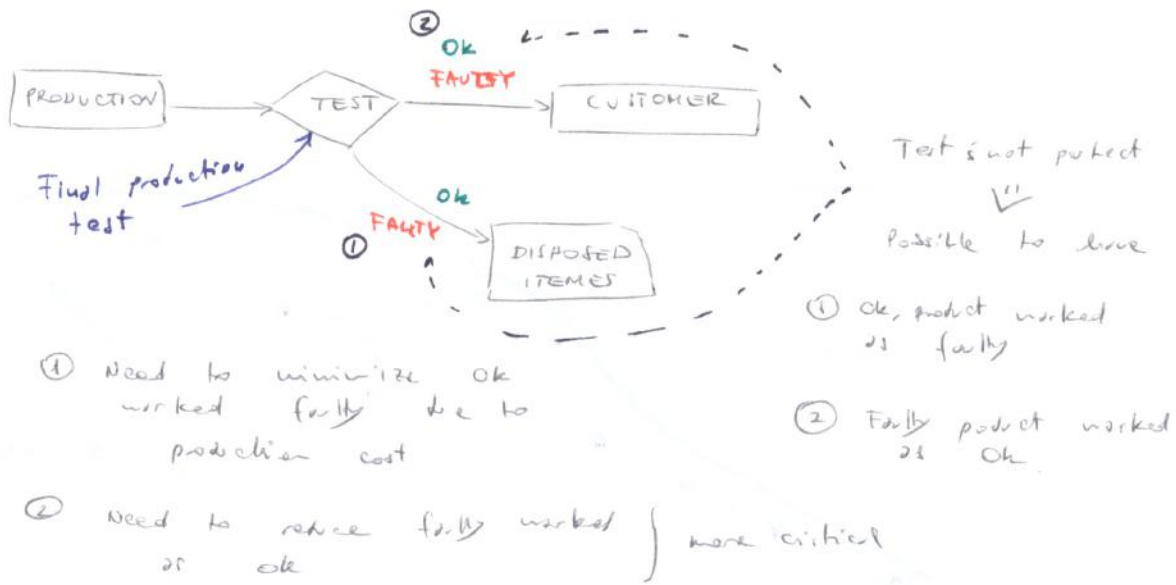 ②
Ok
FAULTY
PRODUCTION
TEST
CUSTOMER
Final production
test
Ok
FAULTY
①
DISPOSED
ITEMES
Test is not perfect
⇓
Possible to have
① Ok, product marked
as faulty
② Faulty product marked
as Ok
① Need to minimize ok
marked faulty due to
production cost
② Need to reduce faulty marked
as ok
more critical